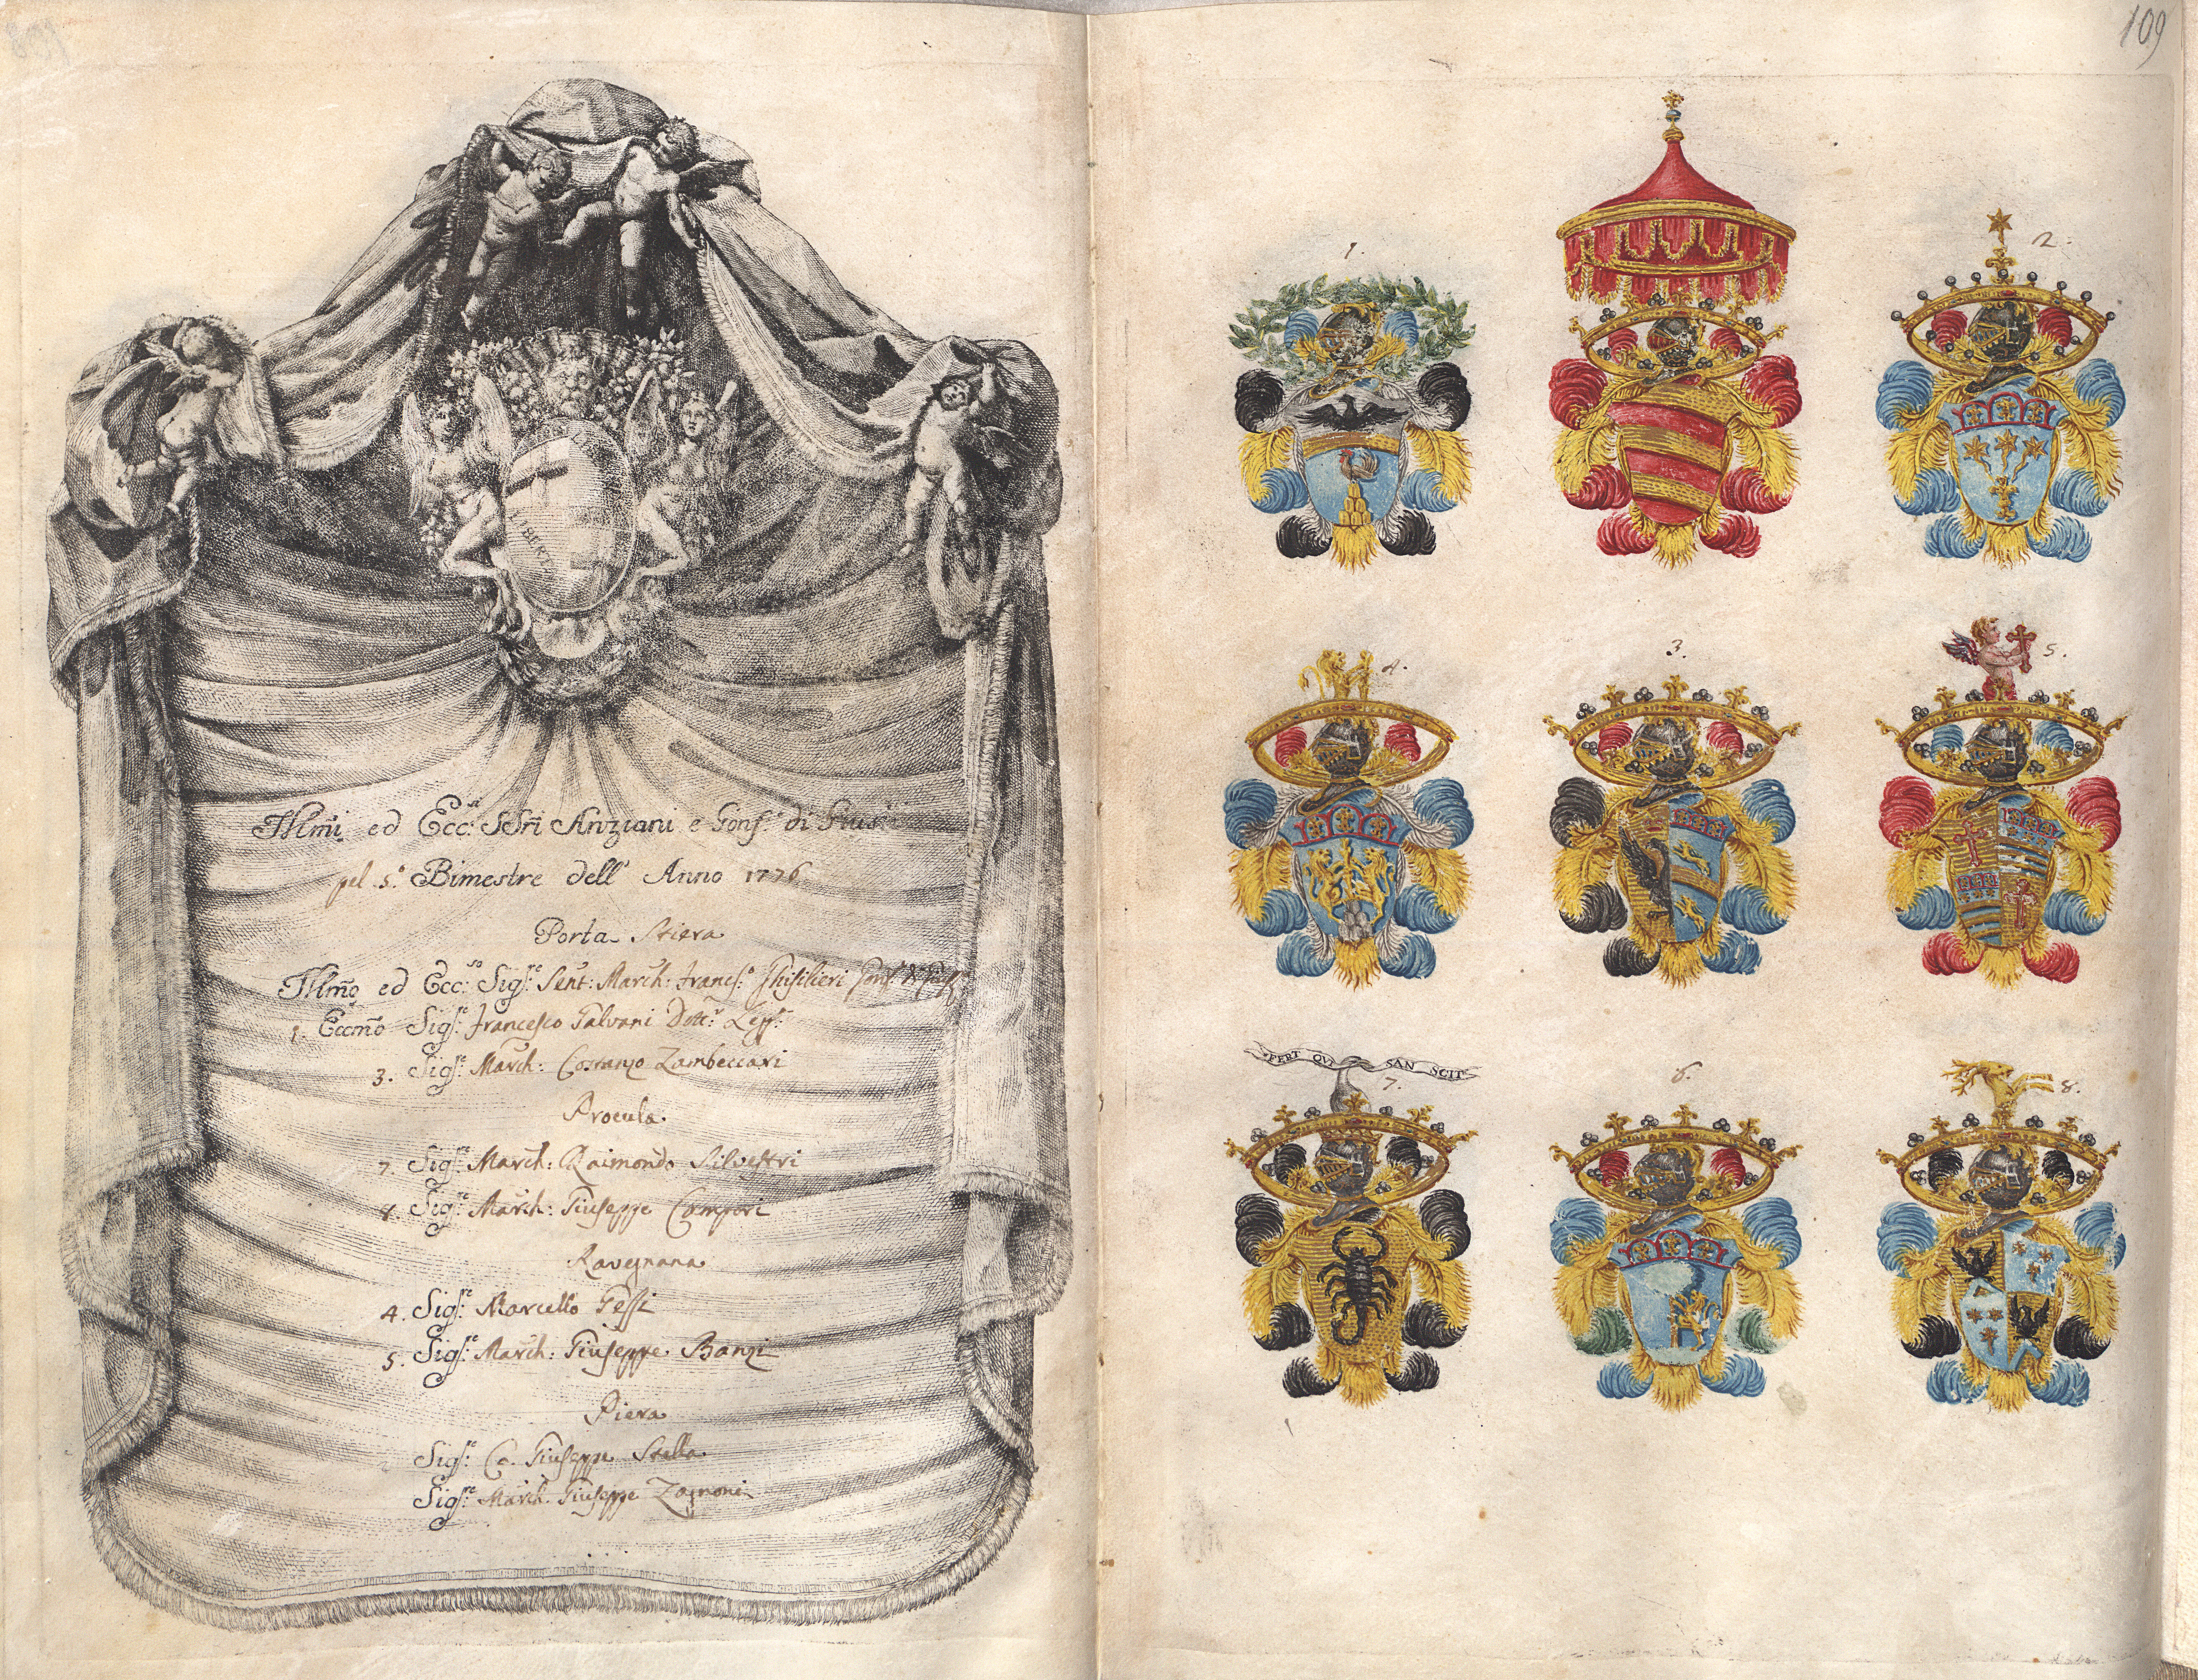 109
LIBERTAS
Illmi ed Ecc:si SSri Anziani e Gonf:re di Giusa
pel 5.o Bimestre dell' Anno 1776
Porta Stiera
Illmo ed Ecc:so Sigr:e Sent: March: Francs:o Ghisilieri Gonf:
1. Eccmo Sigr:e Francesco Galvani Dott:r Legg:e
3. Sigr:e March: Costanzo Zambeccari
Procula
7. Sigr:e March: Raimondo Silvestri
8. Sigr:e March: Giuseppe Campori
Ravegnana
4. Sigr:e Marcello Gessi
5. Sigr:e March: Giuseppe Banzi
Piera
Sigr:e Co. Giuseppe Stella
Sigr:e March. Giuseppe Zagnoni
1.
2.
4.
3.
5.
FERT QVI SAN SCIT
7.
6.
8.